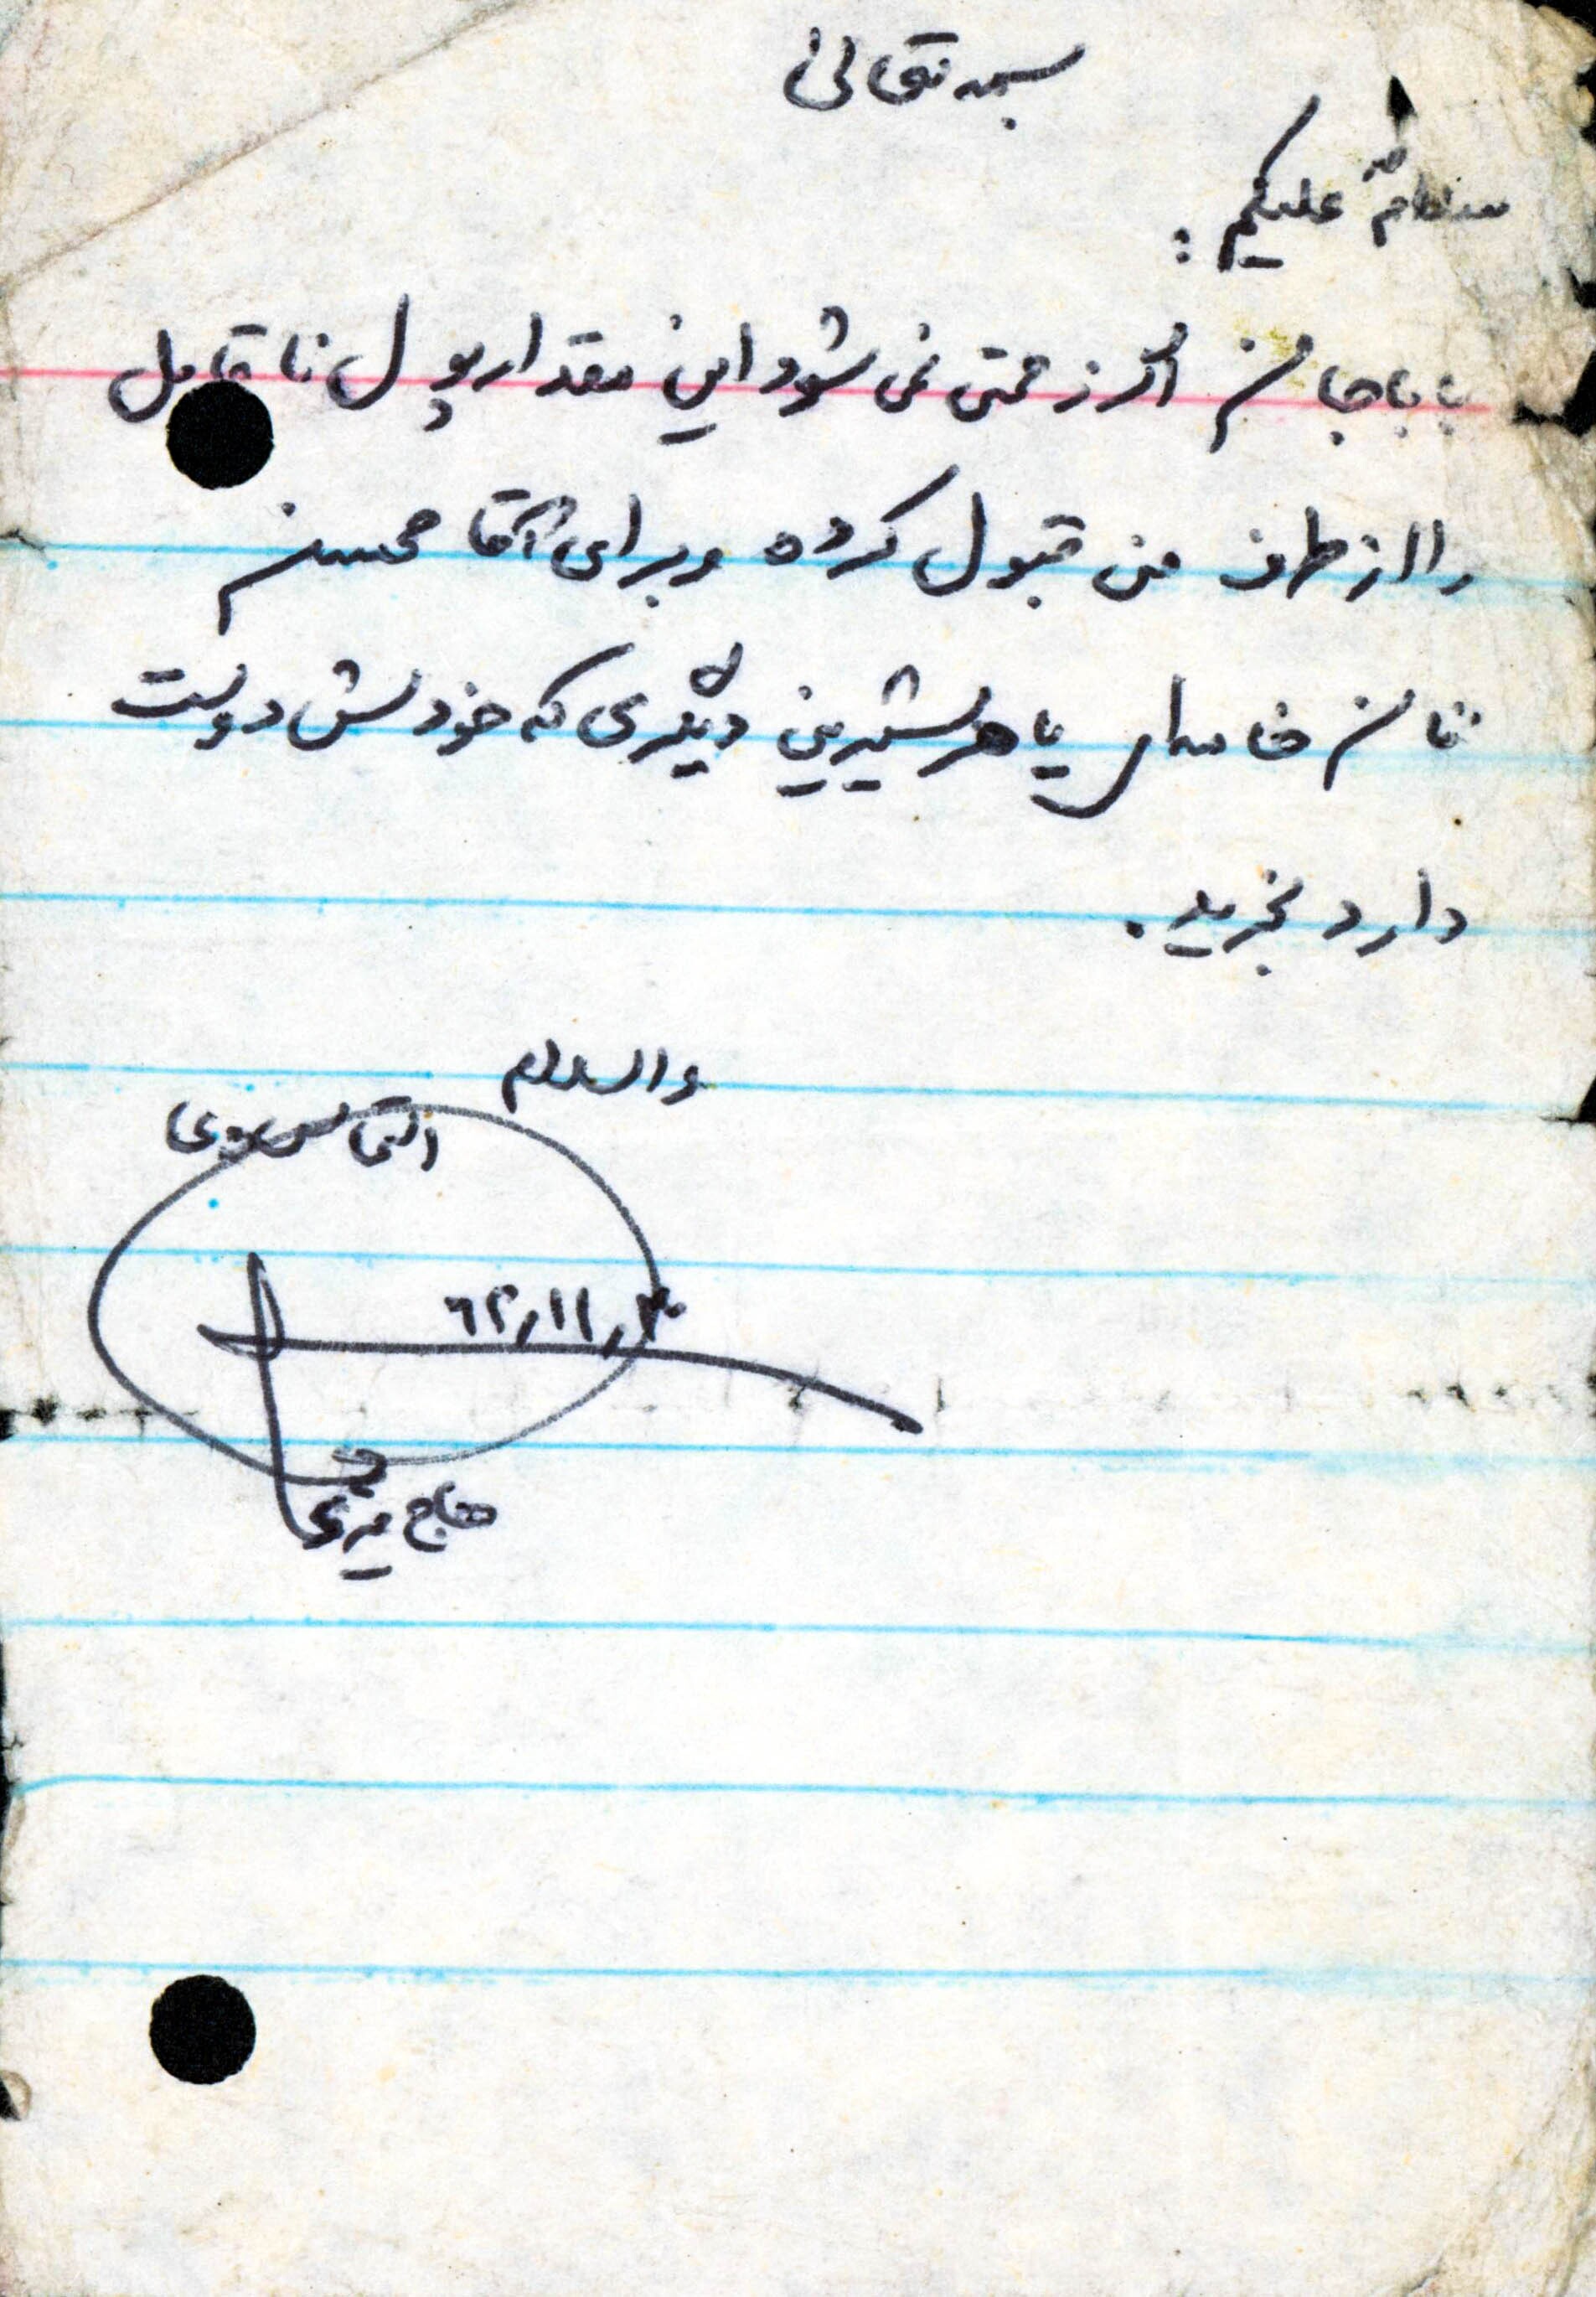 بسمه تعالی
سلام علیکم :
باباجان اگر زحمتی نمی شود این مقدار پول ناقابل
را از طرف من قبول کرده و برای آقا محسن
نان خامه‌ای یا هر شیرینی دیگری که خودش دوست
دارد بخرید .
والسلام
التماس دعا
۶۲٫۱۱٫۳۰
حاج